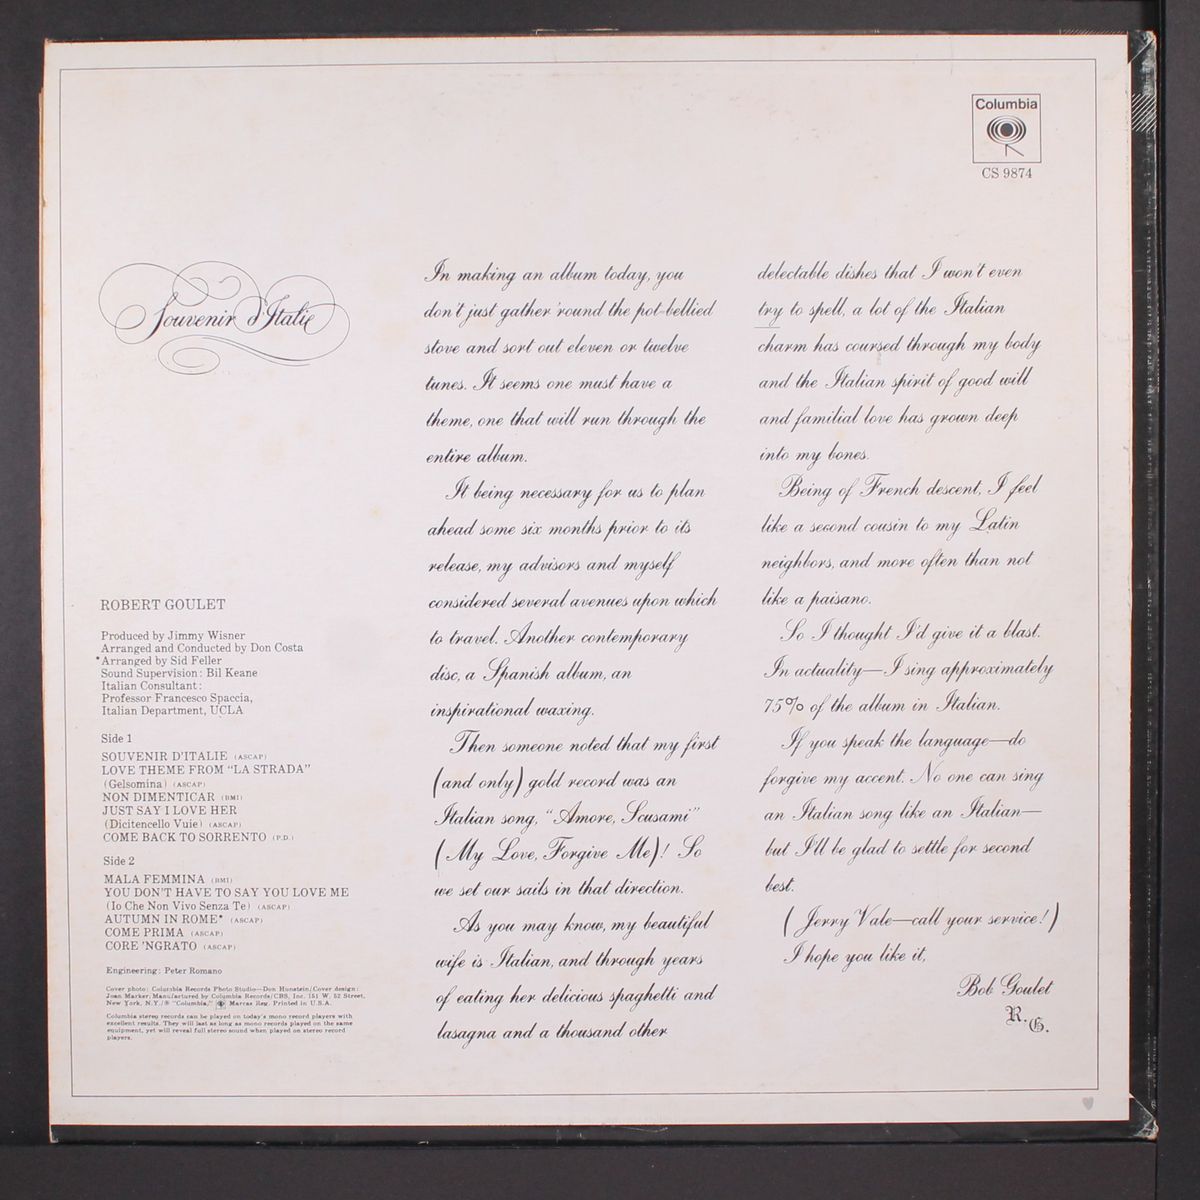 Columbia
CS 9874
Souvenir d'Italie
ROBERT GOULET
Produced by Jimmy Wisner
Arranged and Conducted by Don Costa
*Arranged by Sid Feller
Sound Supervision: Bil Keane
Italian Consultant:
Professor Francesco Spaccia,
Italian Department, UCLA
Side 1
SOUVENIR D'ITALIE (ASCAP)
LOVE THEME FROM "LA STRADA"
(Gelsomina) (ASCAP)
NON DIMENTICAR (BMI)
JUST SAY I LOVE HER
(Dicitencello Vuie) (ASCAP)
COME BACK TO SORRENTO (P.D.)
Side 2
MALA FEMMINA (BMI)
YOU DON'T HAVE TO SAY YOU LOVE ME
(Io Che Non Vivo Senza Te) (ASCAP)
AUTUMN IN ROME* (ASCAP)
COME PRIMA (ASCAP)
CORE 'NGRATO (ASCAP)
Engineering: Peter Romano
Cover photo: Columbia Records Photo Studio—Don Hunstein/Cover design:
Joan Marker/Manufactured by Columbia Records/CBS, Inc. 151 W. 52 Street,
New York, N.Y./® "Columbia," Marcas Reg. Printed in U.S.A.
Columbia stereo records can be played on today's mono record players with
excellent results. They will last as long as mono records played on the same
equipment, yet will reveal full stereo sound when played on stereo record
players.
In making an album today, you
don't just gather 'round the pot-bellied
stove and sort out eleven or twelve
tunes. It seems one must have a
theme, one that will run through the
entire album.
It being necessary for us to plan
ahead some six months prior to its
release, my advisors and myself
considered several avenues upon which
to travel. Another contemporary
disc, a Spanish album, an
inspirational waxing.
Then someone noted that my first
(and only) gold record was an
Italian song, "Amore, Scusami"
(My Love, Forgive Me)! So
we set our sails in that direction.
As you may know, my beautiful
wife is Italian, and through years
of eating her delicious spaghetti and
lasagna and a thousand other
delectable dishes that I won't even
try to spell, a lot of the Italian
charm has coursed through my body
and the Italian spirit of good will
and familial love has grown deep
into my bones.
Being of French descent, I feel
like a second cousin to my Latin
neighbors, and more often than not
like a paisano.
So I thought I'd give it a blast.
In actuality—I sing approximately
75% of the album in Italian.
If you speak the language—do
forgive my accent. No one can sing
an Italian song like an Italian—
but I'll be glad to settle for second
best.
(Jerry Vale—call your service!)
I hope you like it,
Bob Goulet
R.
G.